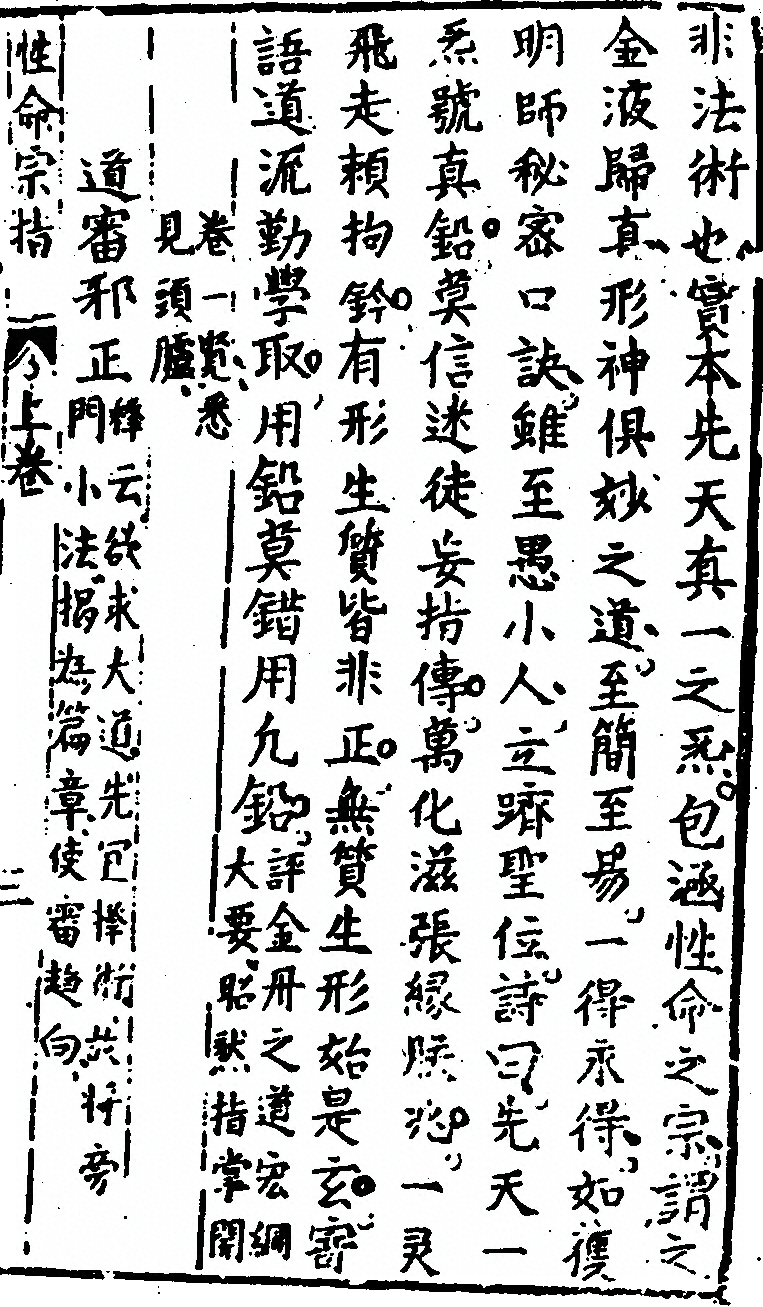 非法術也實本先天真一之炁包涵性命之宗謂之
金液歸真形神俱妙之道至簡至易一得永得如獲
明師秘密口訣雖至愚小人立躋聖位詩曰先天一
炁號真鉛莫信迷徒妄指傳萬化滋張緣朕兆一灵
飛走賴拘鈐有形生質皆非正無質生形始是玄寄
語道流勤學取用鉛莫錯用凡鉛
評金丹之道宏綱
大要昭然指掌開
卷一覽悉
見頭臚
道審邪正
釋云欲求大道先宜擇術茲将旁
門小法揭為篇章使審趋向
性命宗指 上卷 二